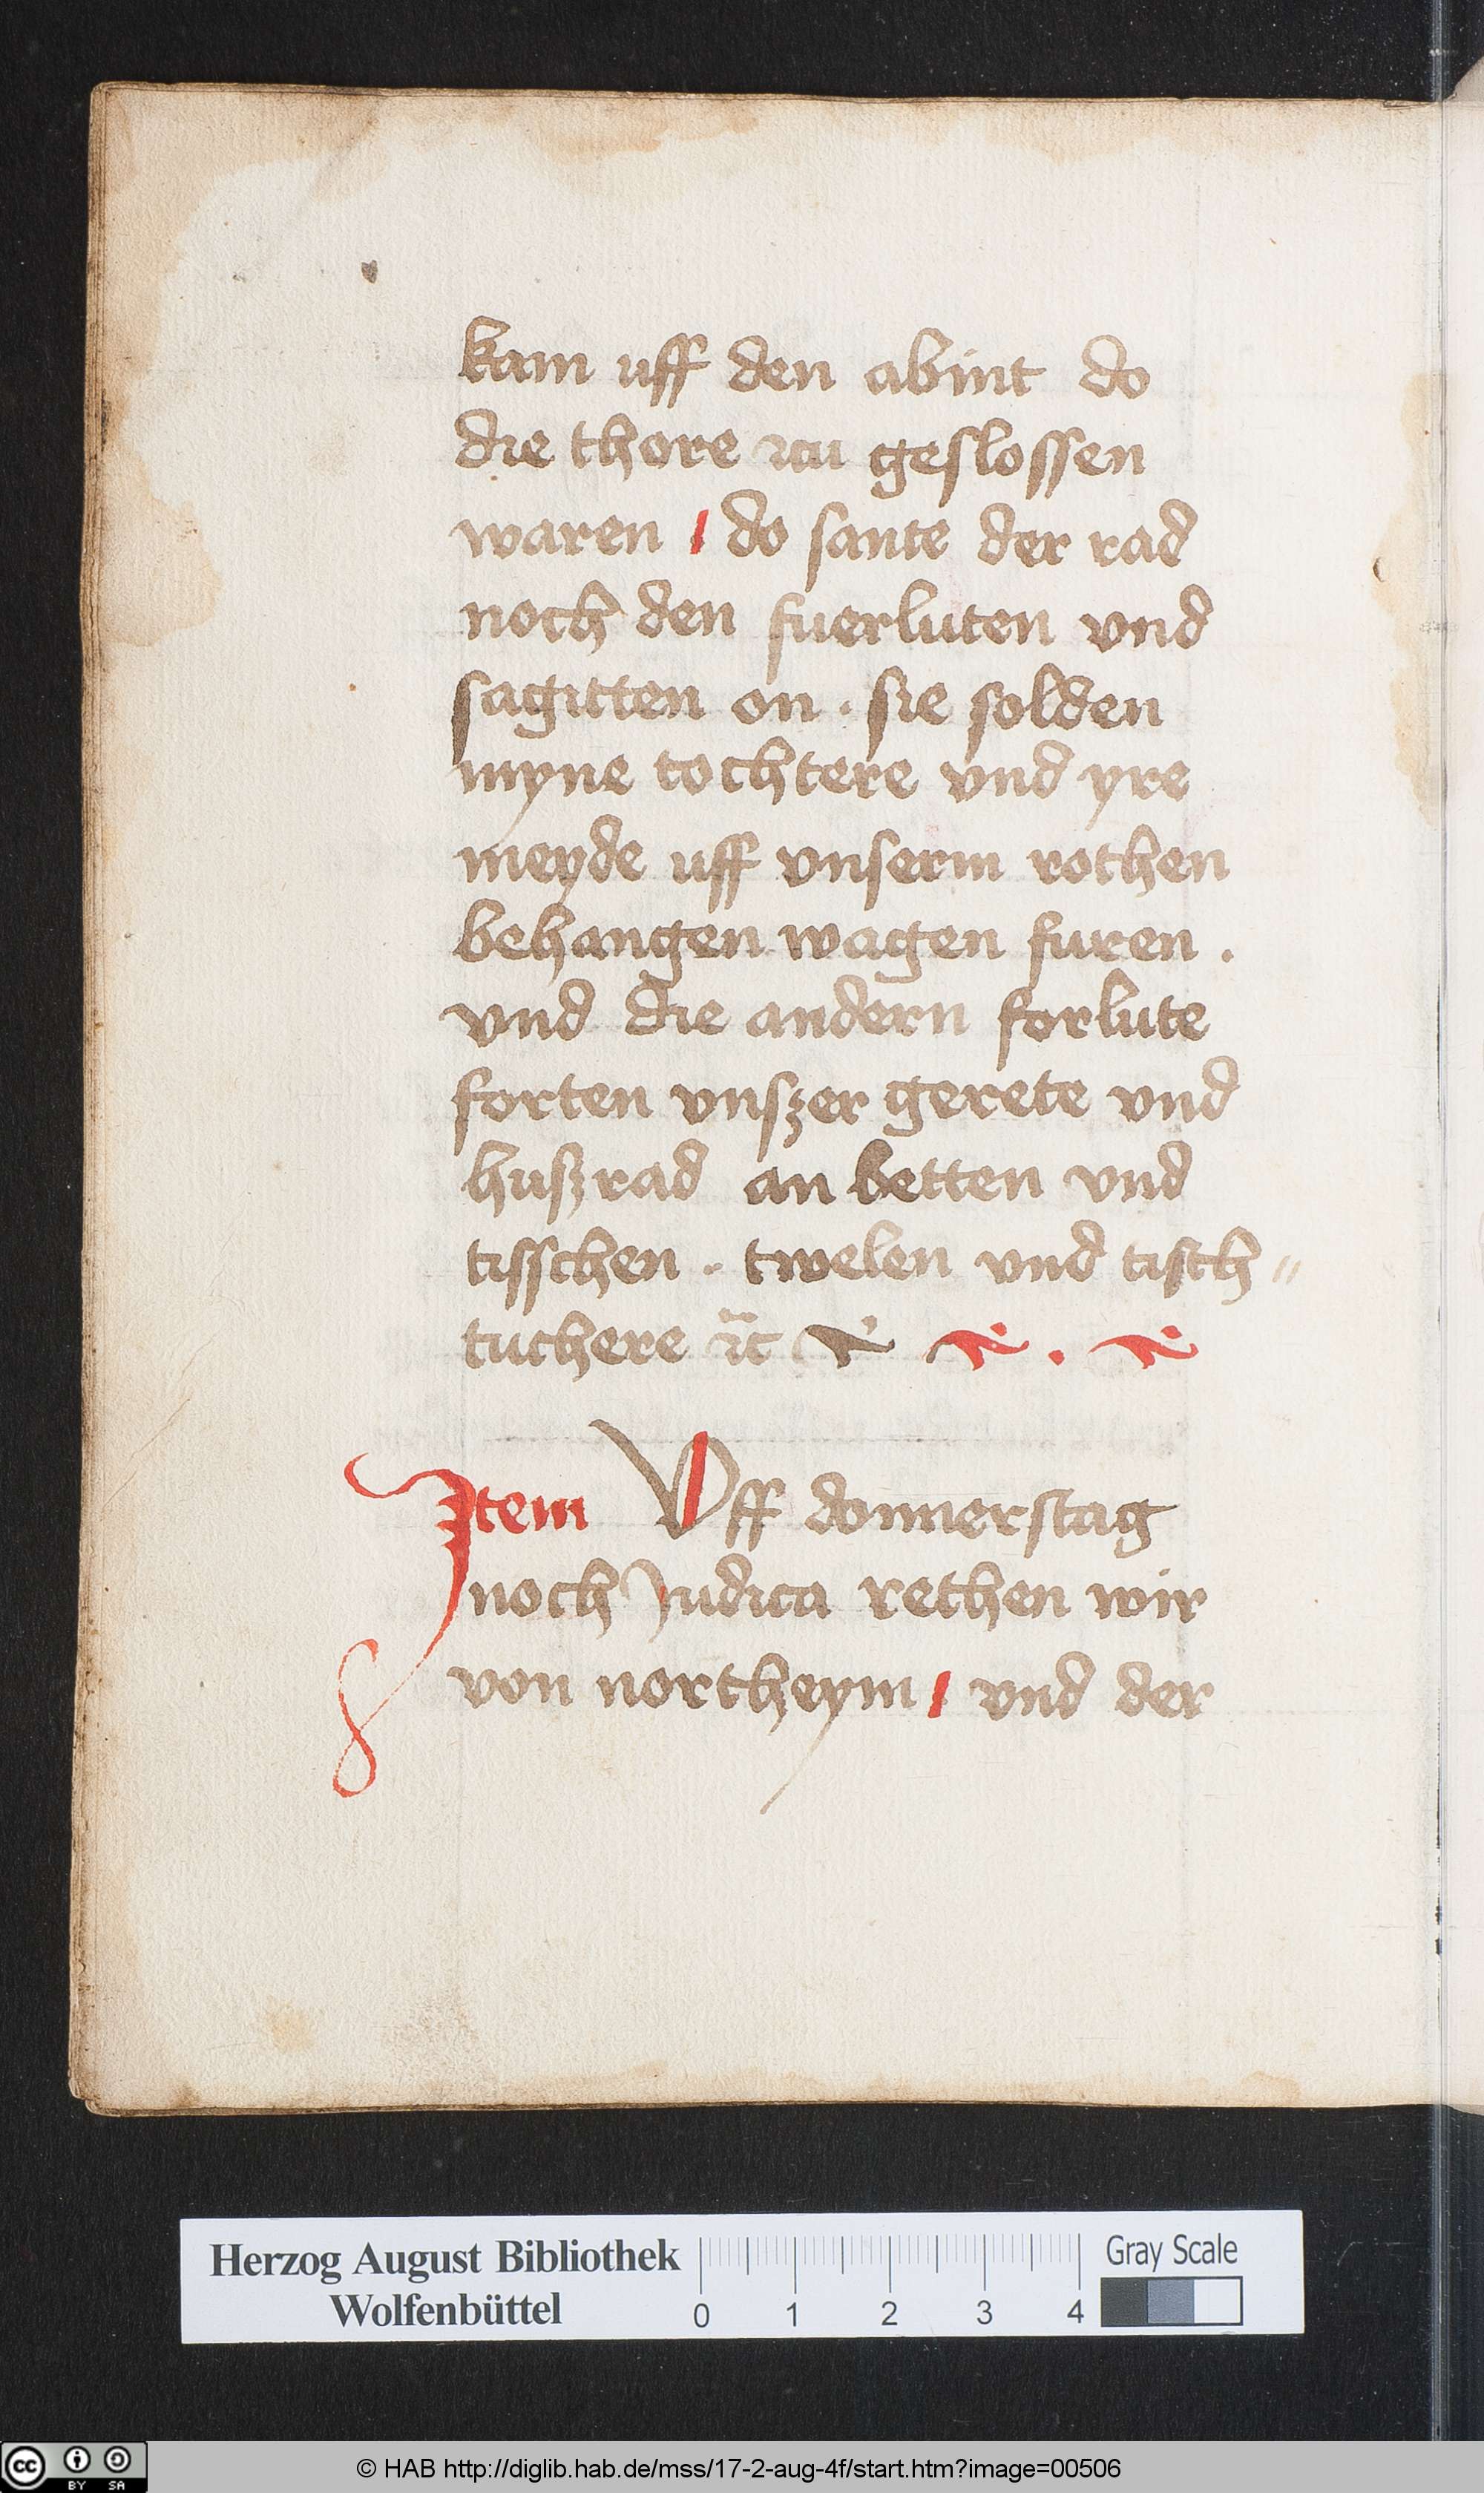 kam uff den abint do
die thore zcu geslossen
waren / do sante der rad
noch den fuerluten vnd
sagitten on · sie solden
myne tochtere vnd yre
meyde uff vnserm rothen
behangen wagen furen .
vnd die andern forlute
forten vnszer gerete vnd
huszrad an betten vnd
tisschen . twelen vnd tisch〃
tuchere ꝛc̃
Item Vff donnerstag
noch Judica rethen wir
von northeym / vnd der
Herzog August Bibliothek
Wolfenbüttel
0 1 2 3 4
Gray Scale
cc BY SA
© HAB http://diglib.hab.de/mss/17-2-aug-4f/start.htm?image=00506